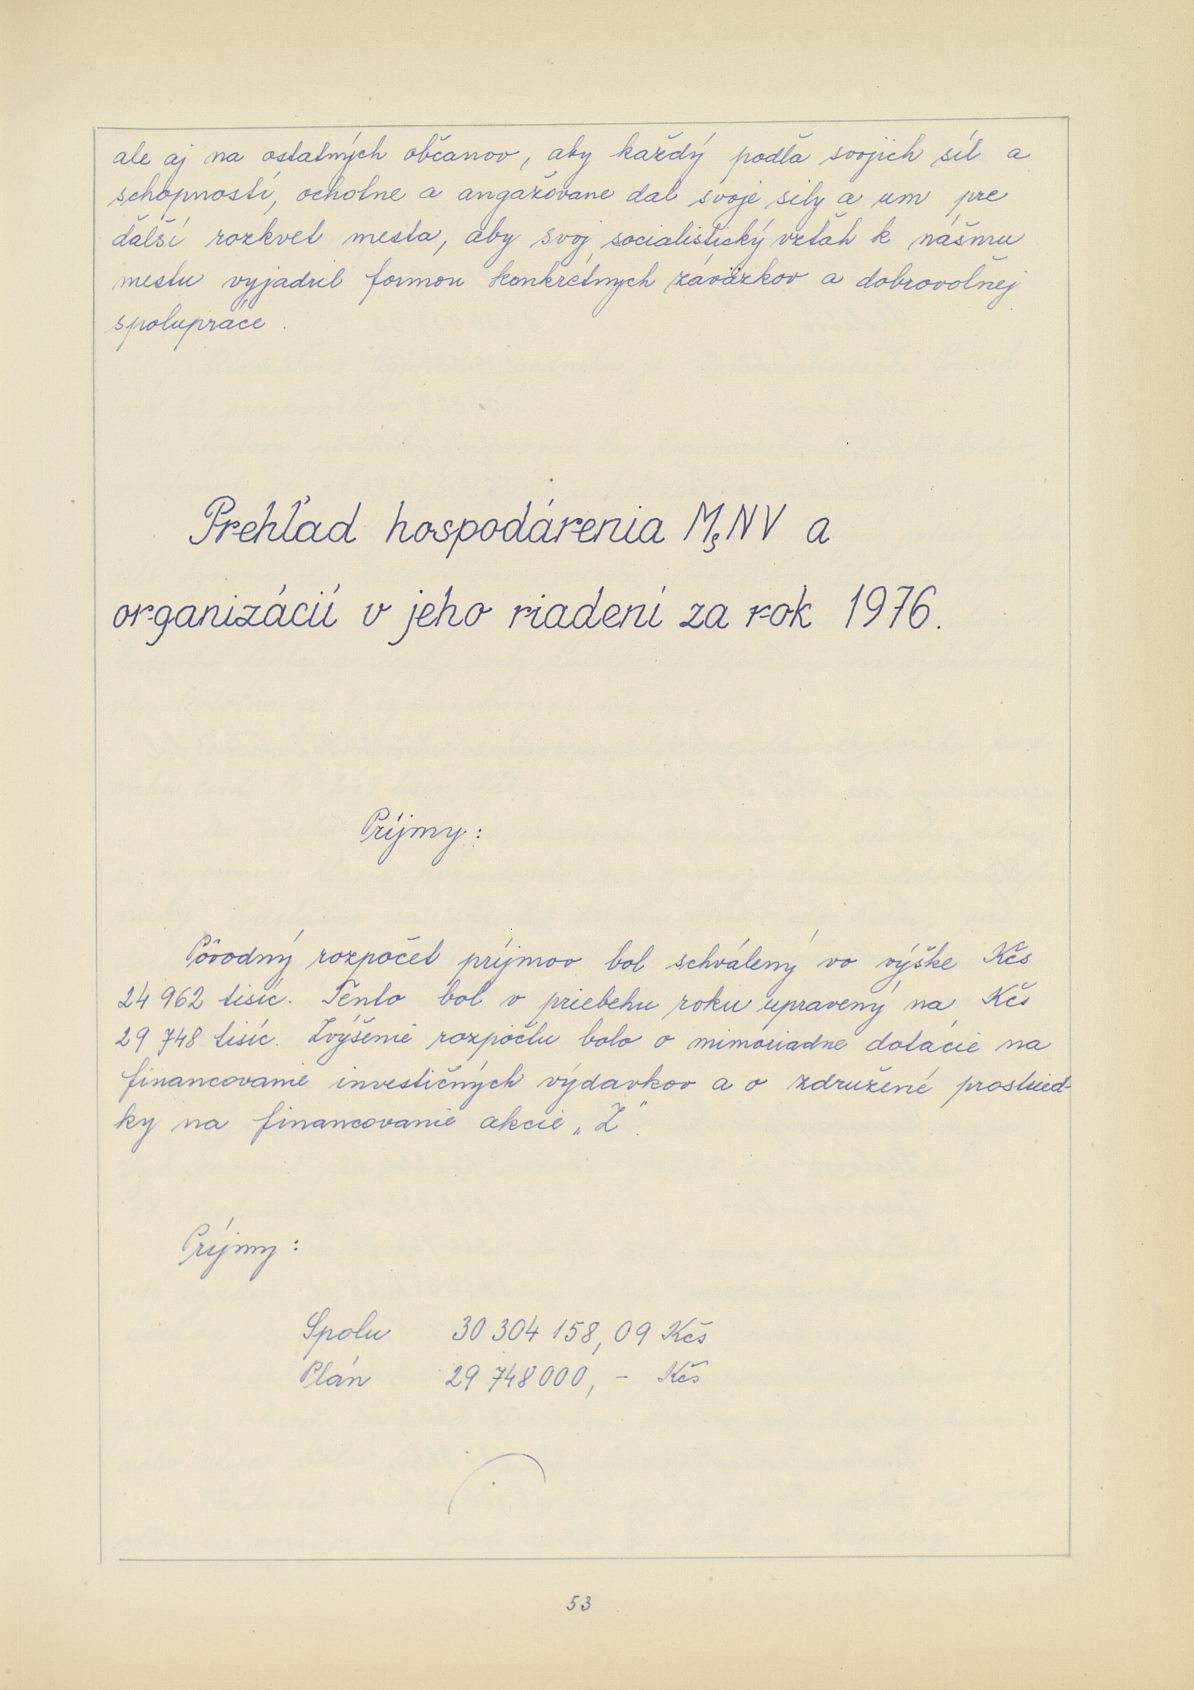 ale aj na ostatných občanov, aby každý podľa svojich síl a
schopností, ochotne a angažovane dal svoje sily a um pre
ďalší rozkvet mesta, aby svoj socialistický vzťah k nášmu
mestu vyjadril formou konkrétnych záväzkov a dobrovoľnej
spolupráce.
Prehľad hospodárenia MsNV a
organizácií v jeho riadení za rok 1976.
Príjmy:
Pôvodný rozpočet príjmov bol schválený vo výške Kčs
24 962 tisíc. Tento bol v priebehu roku upravený na Kčs
29 748 tisíc. Zvýšenie rozpočtu bolo o mimoriadne dotácie na
financovanie investičných výdavkov a o združené prostried-
ky na financovanie akcie „Z".
Príjmy:
Spolu 30 304 158,09 Kčs
Plán 29 748 000,- Kčs
53